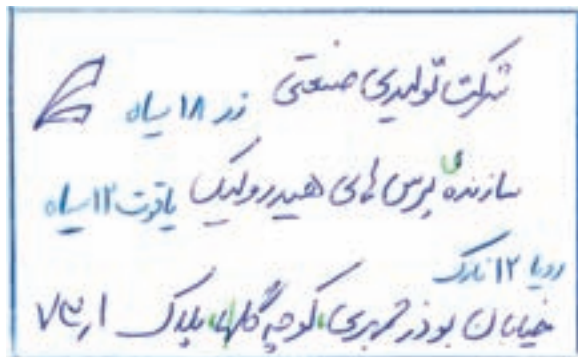 شرکت تولیدی صنعتی زر ۱۸ سیاه
سازنده‌ی پرس های هیدرولیک یاقوت ۱۲ سیاه
رویا ۱۲ نازک
خیابان بوذرجمهری، کوچه گلها، پلاک ۷۳٫۱